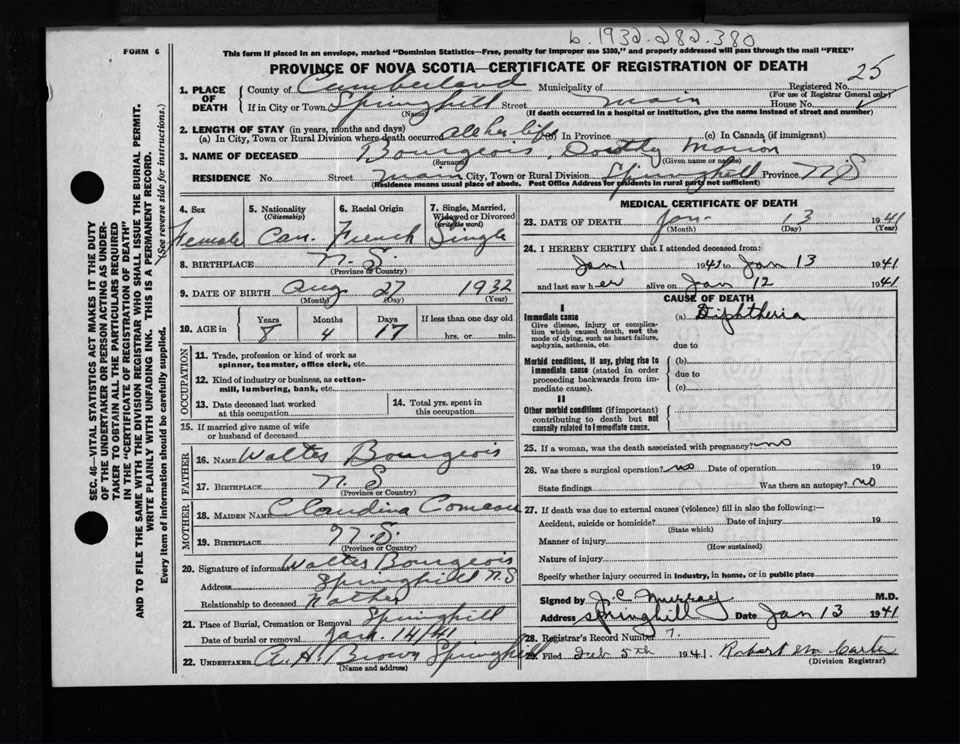 b. 1932-282-380
FORM 6
This form if placed in an envelope, marked "Dominion Statistics—Free, penalty for improper use $300," and properly addressed will pass through the mail "FREE"
PROVINCE OF NOVA SCOTIA—CERTIFICATE OF REGISTRATION OF DEATH
25
1. PLACE OF DEATH
County of Cumberland Municipality of Registered No.
(For use of Registrar General only)
If in City or Town Springhill Street main House No.
(Name) (If death occurred in a hospital or institution, give the name instead of street and number)
2. LENGTH OF STAY (in years, months and days)
(a) In City, Town or Rural Division where death occurred all her life (b) In Province (c) In Canada (if immigrant)
3. NAME OF DECEASED Bourgeois, Marion
(Surname) (Given name or names)
RESIDENCE No. Street main City, Town or Rural Division Springhill Province N.S
(Residence means usual place of abode. Post Office Address for residents in rural parts not sufficient)
4. Sex 5. Nationality (Citizenship) 6. Racial Origin 7. Single, Married, Widowed or Divorced (write the word)
Female Can. French Single
8. BIRTHPLACE N.S.
(Province or Country)
9. DATE OF BIRTH Aug 27 1932
(Month) (Day) (Year)
10. AGE in Years Months Days If less than one day old
8 4 17 hrs. or min.
OCCUPATION
11. Trade, profession or kind of work as
spinner, teamster, office clerk, etc.
12. Kind of industry or business, as cotton-
mill, lumbering, bank, etc.
13. Date deceased last worked
at this occupation
14. Total yrs. spent in
this occupation
15. If married give name of wife
or husband of deceased
FATHER
16. NAME Walter Bourgeois
17. BIRTHPLACE N.S
(Province or Country)
MOTHER
18. MAIDEN NAME Claudina Comeau
19. BIRTHPLACE N.S.
(Province or Country)
20. Signature of informant Walter Bourgeois
Address Springhill N.S
Relationship to deceased
21. Place of Burial, Cremation or Removal Springhill
Date of burial or removal Jan. 14/41
22. UNDERTAKER A. H Brown Springhill
(Name and address)
MEDICAL CERTIFICATE OF DEATH
23. DATE OF DEATH Jan 13 1941
(Month) (Day) (Year)
24. I HEREBY CERTIFY that I attended deceased from:
Jan 1 1941 to Jan 13 1941
and last saw her alive on Jan 12 1941
CAUSE OF DEATH
I
Immediate cause (a) Diphtheria
Give disease, injury or complica-
tion which caused death, not the
mode of dying, such as heart failure,
asphyxia, asthenia, etc.
due to
Morbid conditions, if any, giving rise to (b)
immediate cause (stated in order due to
proceeding backwards from im-
mediate cause). (c)
II
Other morbid conditions (if important)
contributing to death but not
causally related to immediate cause.
25. If a woman, was the death associated with pregnancy? no
26. Was there a surgical operation? no Date of operation 19
State findings Was there an autopsy? no
27. If death was due to external causes (violence) fill in also the following:—
Accident, suicide or homicide? Date of injury 19
(State which)
Manner of injury
(How sustained)
Nature of injury
Specify whether injury occurred in industry, in home, or in public place
Signed by J. C. Murray M.D.
Address Springhill Date Jan 13 1941
28. Registrar's Record Number 7.
29. Filed Feb 5th 1941. Robert
(Division Registrar)
SEC. 46—VITAL STATISTICS ACT MAKES IT THE DUTY
OF THE UNDERTAKER OR PERSON ACTING AS UNDER-
TAKER TO OBTAIN ALL THE PARTICULARS REQUIRED
IN THE "CERTIFICATE OF REGISTRATION OF DEATH"
AND TO FILE THE SAME WITH THE DIVISION REGISTRAR WHO SHALL ISSUE THE BURIAL PERMIT.
WRITE PLAINLY WITH UNFADING INK. THIS IS A PERMANENT RECORD.
Every item of information should be carefully supplied. (See reverse side for instructions.)